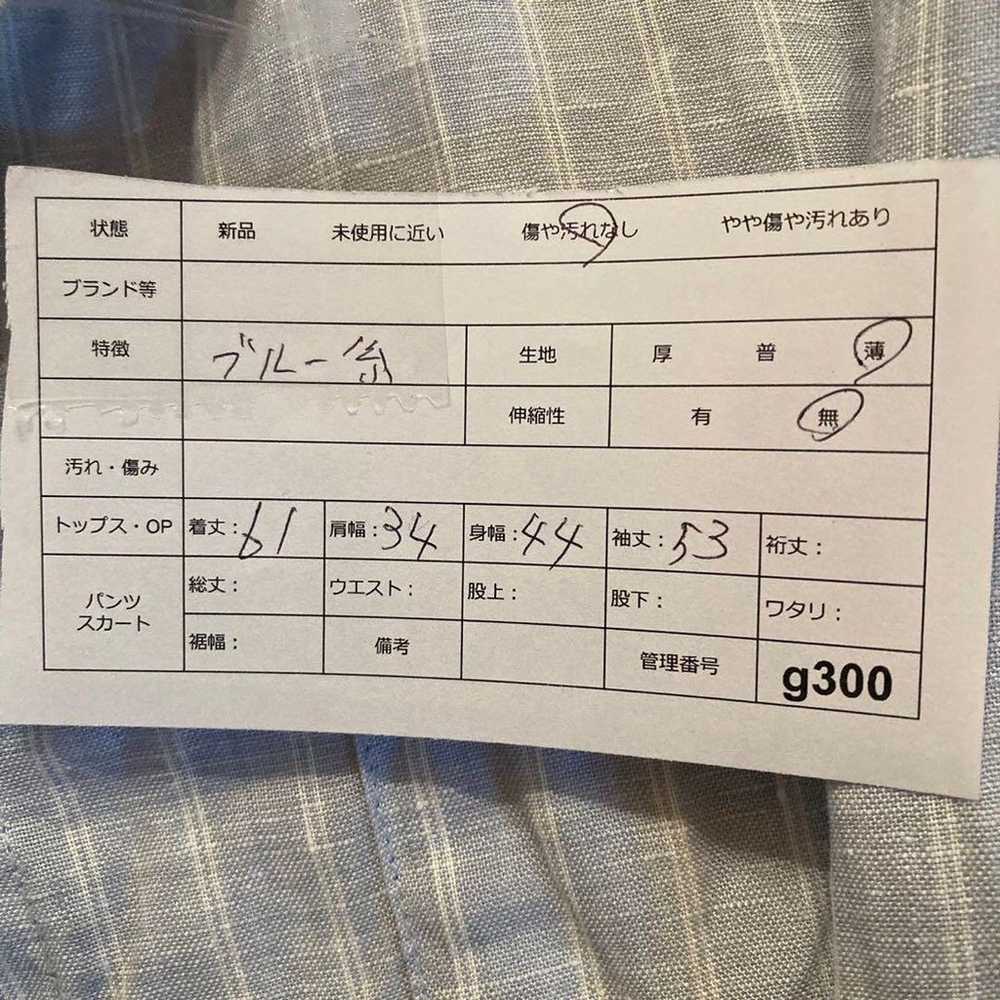 状態 新品 未使用に近い 傷や汚れなし やや傷や汚れあり
ブランド等
特徴 ブルー系 生地 厚 普 薄
伸縮性 有 無
汚れ・傷み
トップス・OP 着丈：61 肩幅：34 身幅：44 袖丈：53 裄丈：
パンツ スカート 総丈： ウエスト： 股上： 股下： ワタリ：
裾幅： 備考 管理番号 g300